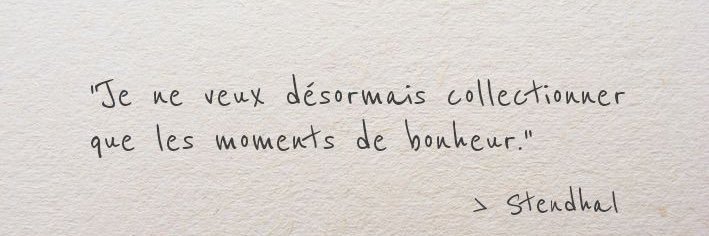 "Je ne veux désormais collectionner
que les moments de bonheur."
> Stendhal